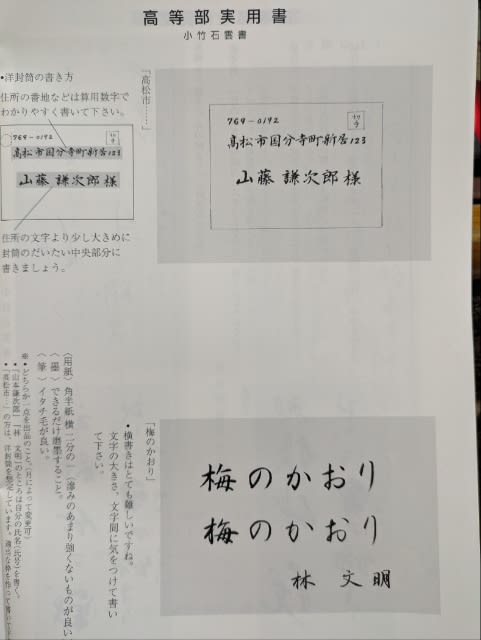 高等部実用書
小竹石雲書
•洋封筒の書き方
住所の番地などは算用数字で
わかりやすく書いて下さい。
769-0192
切手
高松市国分寺町新居123
山藤謙次郎様
住所の文字より少し大きめに
封筒のだいたい中央部分に
書きましょう。
「高松市……」
769-0192
切手
高松市国分寺町新居123
山藤謙次郎様
「梅のかおり」
•横書きはとても難しいですね。
文字の大きさ、文字間に気をつけて書い
て下さい。
梅のかおり
梅のかおり
林 文明
〈用紙〉角半紙横二分の一(滲みのあまり強くないものが良い
〈墨〉できるだけ磨墨すること。
〈筆〉イタチ毛が良い。
※•どちらか一点を出品のこと。(月によって変更可)
•「山本謙次郎」「林 文明」のところは自分の氏名(氏号)を書く。
•「高松市…」の方は、洋封筒を想定しています。適当な枠を作って書いて